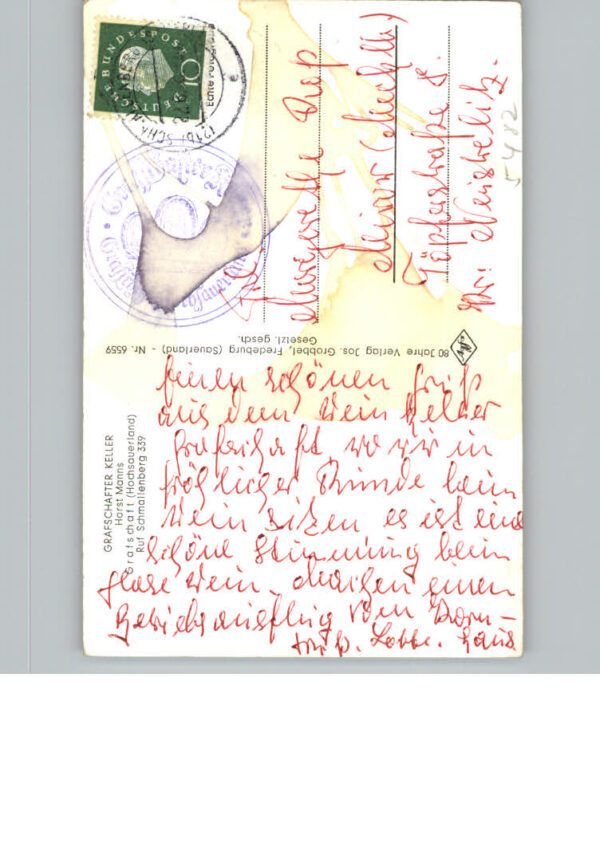 GRAFSCHAFTER KELLER
Horst Manns
Grafschaft (Hochsauerland)
Ruf Schmallenberg 339
einen schönen Gruß
aus dem Wein Keller
Grafschaft, wo wir in
fröhlicher Stunde beim
Wein sitzen es ist eine
schöne Stimmung beim
glase Wein. Machen einen
Betriebsausflug vom Dorn-
Hans
80 Jahre Verlag Jos. Grobbel, Fredeburg (Sauerland) - Nr. 6559
Gesetzl. gesch.
DEUTSCHE BUNDESPOST
10
Echte Fotografie
Margarethe
Mirow (Mecklb)
Töpferstraße 8.
Kr. Neustrelitz.
5482